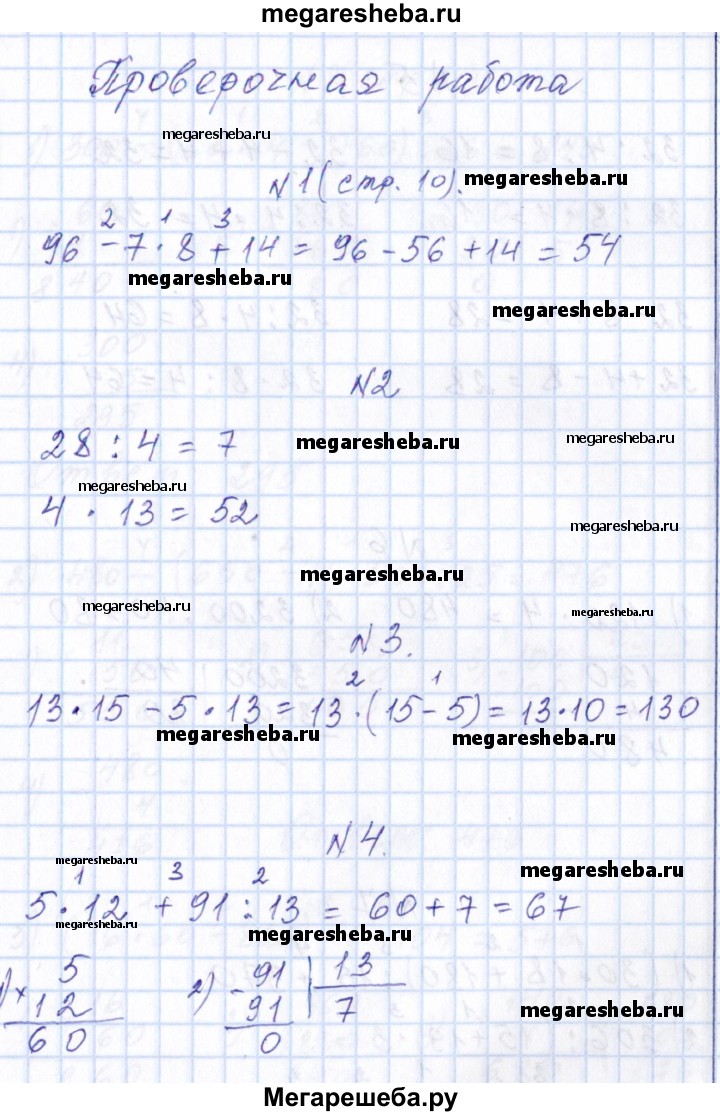 megaresheba.ru
Проверочная работа
megaresheba.ru
N1 (стр. 10). megaresheba.ru
2 1 3
96 - 7 · 8 + 14 = 96 - 56 + 14 = 54
megaresheba.ru
megaresheba.ru
N2
28 : 4 = 7 megaresheba.ru megaresheba.ru
megaresheba.ru
4 · 13 = 52 megaresheba.ru
megaresheba.ru
megaresheba.ru megaresheba.ru
N3.
2 1
13 · 15 - 5 · 13 = 13 · (15 - 5) = 13 · 10 = 130
megaresheba.ru megaresheba.ru
N4.
megaresheba.ru megaresheba.ru
1 3 2
5 · 12 + 91 : 13 = 60 + 7 = 67
megaresheba.ru megaresheba.ru
1) × 5 2) - 91 | 13
12 91 7
60 0
megaresheba.ru
Мегарешеба.ру